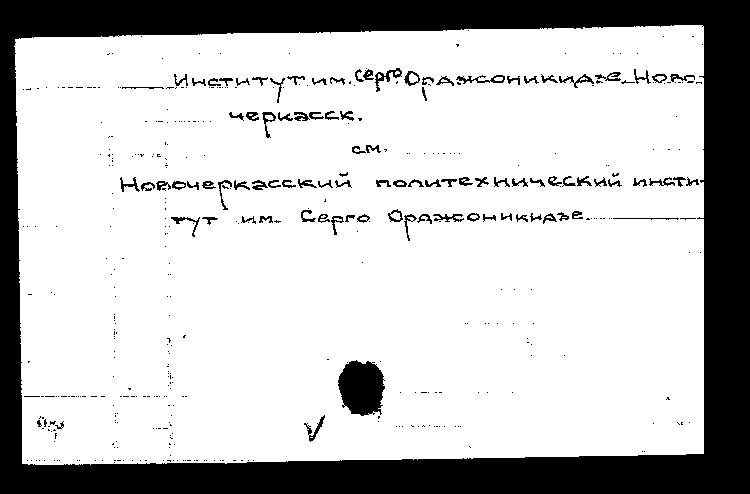 Институт им. Серго Орджоникидзе. Ново-
черкасск.
см.
Новочеркасский политехнический инсти-
тут им. Серго Орджоникидзе.